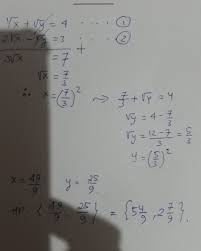 √x + √y = 4 . . . . ①
2√x − √y = 3 . . . . ②
+
3√x = 7
√x = 7/3
∴ x = (7/3)² ⇝ 7/3 + √y = 4
√y = 4 − 7/3
√y = 12 − 7/3 = 5/3
y = (5/3)²
x = 49/9 y = 25/9
HP. {49/9, 25/9} = {5 4/9, 2 7/9}.